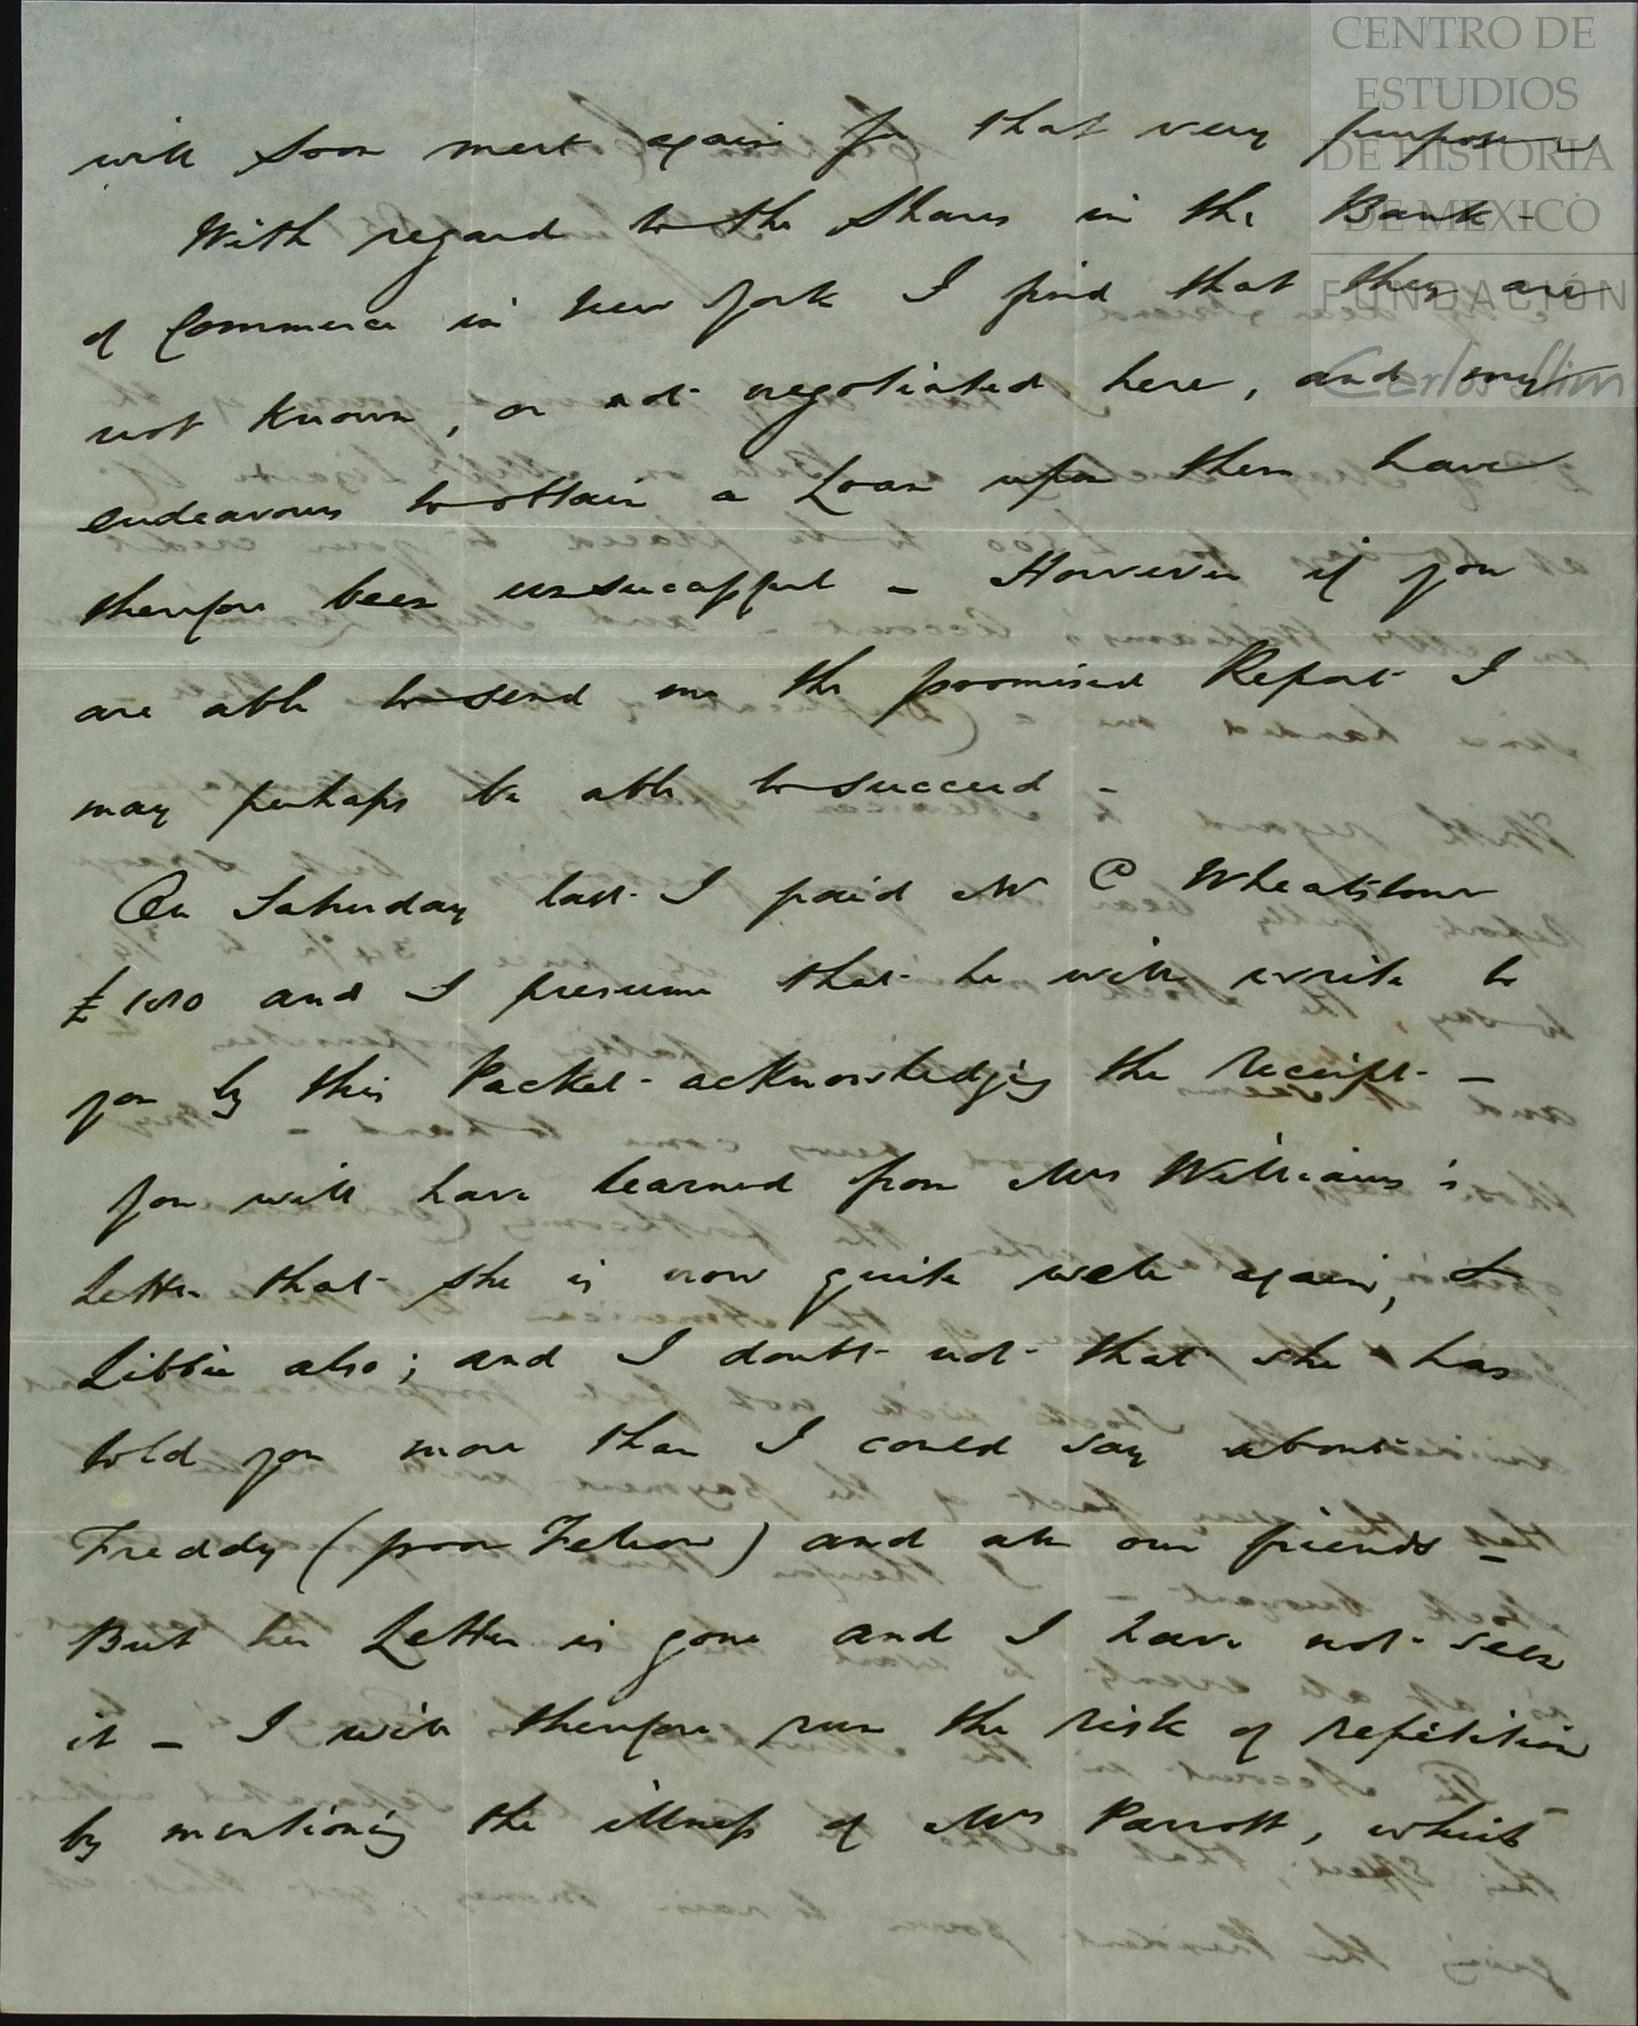 CENTRO DE
ESTUDIOS
DE HISTORIA
DE MEXICO
FUNDACIÓN
Carlos Slim
will soon meet again for that very purpose
With regard to the Shares in the Bank -
of Commerce in New York I find that they are
not known, or not negotiated here, and my
endeavours to obtain a Loan upon them have
therefore been unsuccessful - However if you
are able to send me the promised Report I
may perhaps be able to succeed -
On Saturday last I paid Mr C Wheatstone
£100 and I presume that he will write to
you by this Packet acknowledging the receipt -
You will have learned from Mrs Williams's
Letter that she is now quite well again, &
Libbie also; and I doubt not that she has
told you more than I could say about
Freddy (poor Fellow) and all our friends -
But her Letter is gone and I have not seen
it - I will therefore run the risk of repetition
by mentioning the illness of Mrs Parrott, which